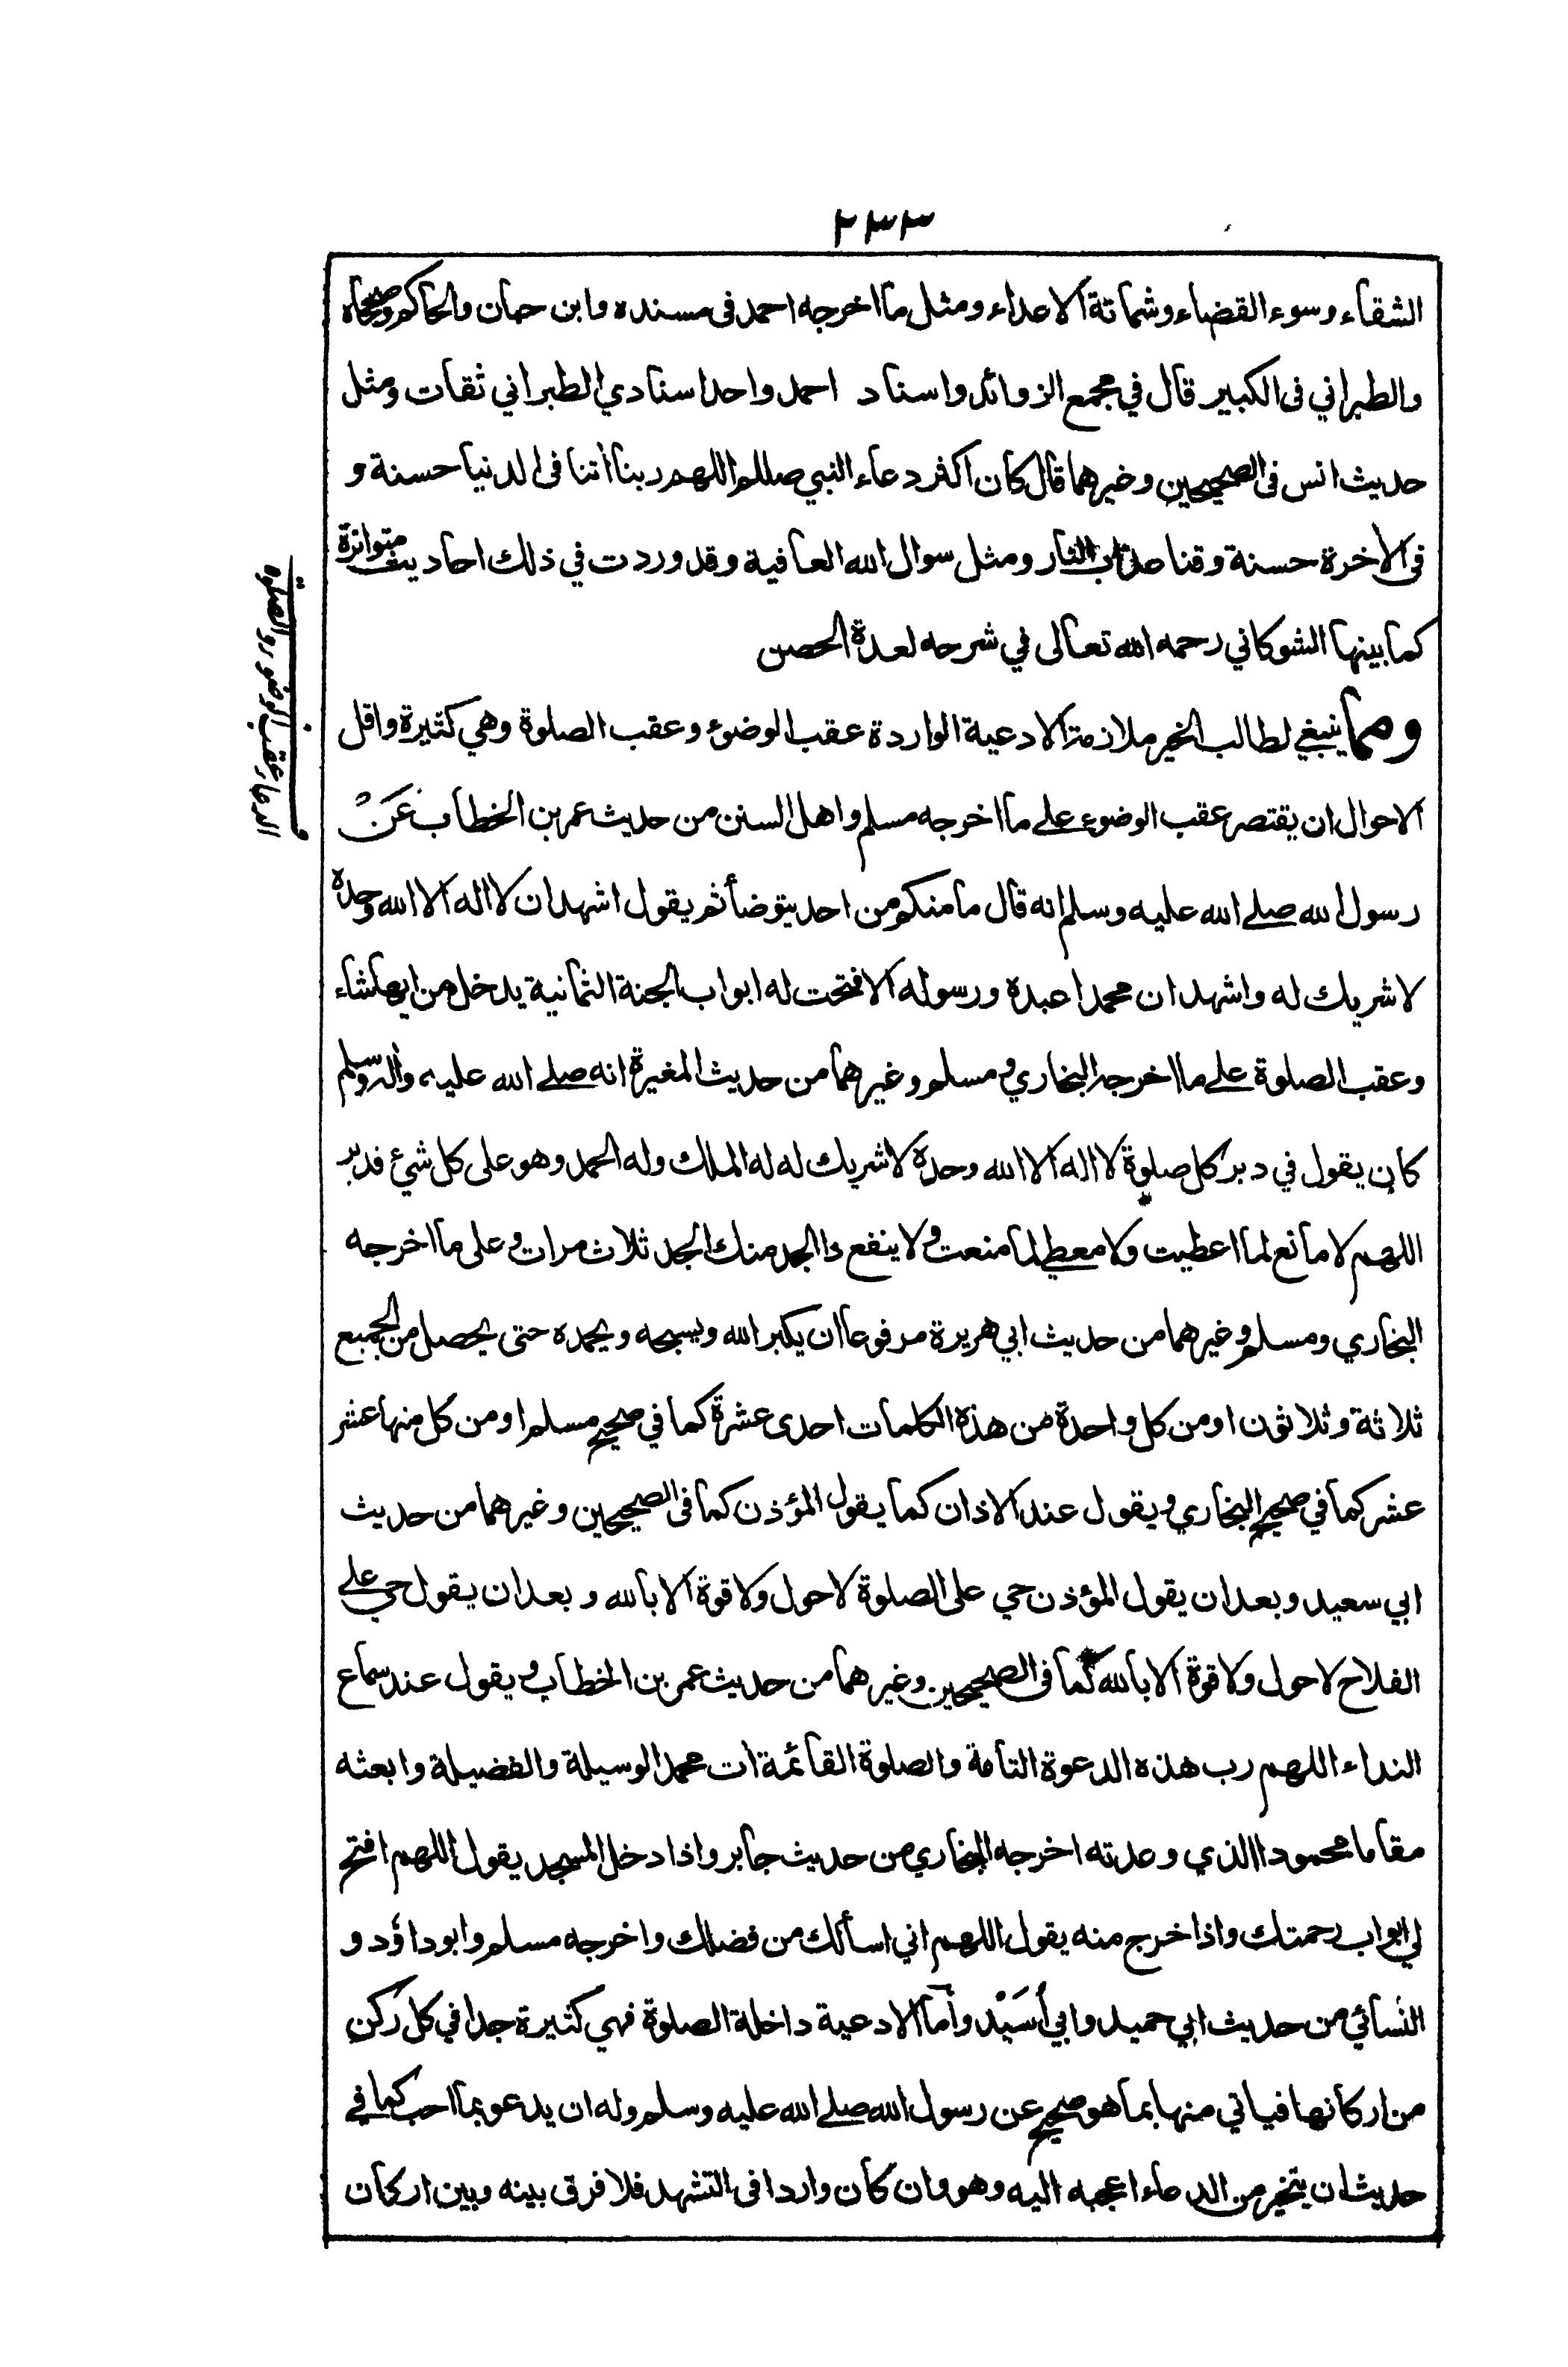 ٢٣٣
الشقاء وسوء القضاء وشماتة الاعداء ومثل ما اخرجه احمد فى مسنده وابن حبان والحاكم وصححاه
والطبراني فى الكبير قال في مجمع الزوائد واسناد احمد واحد اسنادي الطبراني ثقات ومثل
حديث انس فى الصحيحين وغيرهما قال كان اكثر دعاء النبي صللم اللهم ربنا أتنا فى الدنيا حسنة و
فى الاخرة حسنة وقنا عذاب النار ومثل سوال الله العافية وقد وردت في ذلك احاديث متواترة
كما بينها الشوكاني رحمه الله تعالى في شرحه لعدة الحصن
ومما ينبغي لطالب الخير ملازمة الادعية الواردة عقب الوضوء وعقب الصلوة وهي كثيرة واقل
الاحوال ان يقتصر عقب الوضوء على ما اخرجه مسلم واهل السنن من حديث عمر بن الخطاب عَنْ
رسول الله صلى الله عليه وسلم انه قال ما منكم من احد يتوضأ ثم يقول اشهد ان لا اله الا الله وحده
لا شريك له واشهد ان محمدا عبده ورسوله الا فتحت له ابواب الجنة الثمانية يدخل من ايها شاء
وعقب الصلوة على ما اخرجه البخاري ومسلم وغيرهما من حديث المغيرة انه صلى الله عليه واله وسلم
كان يقول في دبر كل صلوة لا اله الا الله وحده لا شريك له له الملك وله الحمد وهو على كل شيء قدير
اللهم لا مانع لما اعطيت ولا معطي لما منعت ولا ينفع ذا الجد منك الجد ثلاث مرات وعلى ما اخرجه
البخاري ومسلم وغيرهما من حديث ابي هريرة مرفوعا ان يكبر الله ويسبحه ويحمده حتى يحصل من الجميع
ثلاثة وثلاثون او من كل واحدة من هذه الكلمات احدى عشرة كما في صحيح مسلم او من كل منها عشر
عشر كما في صحيح البخاري ويقول عند الاذان كما يقول المؤذن كما فى الصحيحين وغيرهما من حديث
ابي سعيد وبعد ان يقول المؤذن حي على الصلوة لا حول ولا قوة الا بالله وبعد ان يقول حي على
الفلاح لا حول ولا قوة الا بالله كما فى الصحيحين وغيرهما من حديث عمر بن الخطاب ويقول عند سماع
النداء اللهم رب هذه الدعوة التامة والصلوة القائمة ات محمدا الوسيلة والفضيلة وابعثه
مقاما محمودا الذي وعدته اخرجه البخاري من حديث جابر واذا دخل المسجد يقول اللهم افتح
لي ابواب رحمتك واذا خرج منه يقول اللهم اني اسألك من فضلك واخرجه مسلم وابو داؤد و
النسائي من حديث ابي حميد وابي أُسَيْد وأما الادعية داخلة الصلوة فهي كثيرة جدا في كل ركن
من اركانها فياتي منها بما هو صحيح عن رسول الله صلى الله عليه وسلم وله ان يدعو بما احب كما في
حديث ان يتخير من الدعاء اعجبه اليه وهو وان كان واردا فى التشهد فلا فرق بينه وبين اركان
الدعاء عقب الوضوء والصلوة